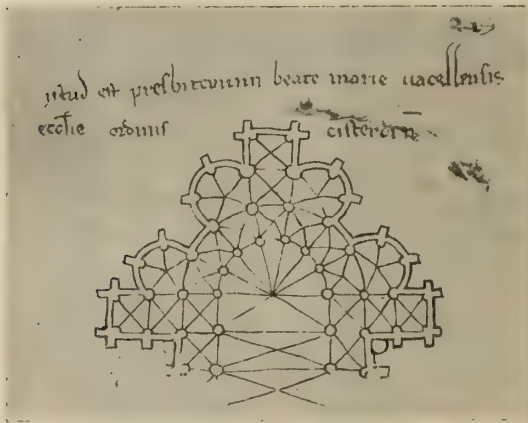 istud est presbiterium beate marie uacellensis
ecclie ordinis cistercien